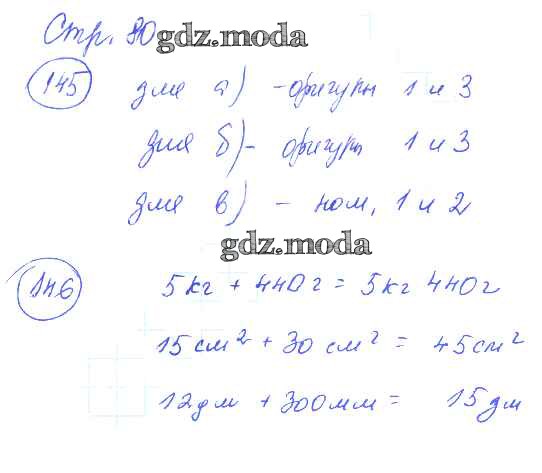 Стр. 80 gdz.moda
145 для а) - фигуры 1 и 3
для б) - фигуры 1 и 3
для в) - ном, 1 и 2
gdz.moda
146 5кг + 440г = 5кг 440г
15 см² + 30 см² = 45 см²
12дм + 300мм = 15дм